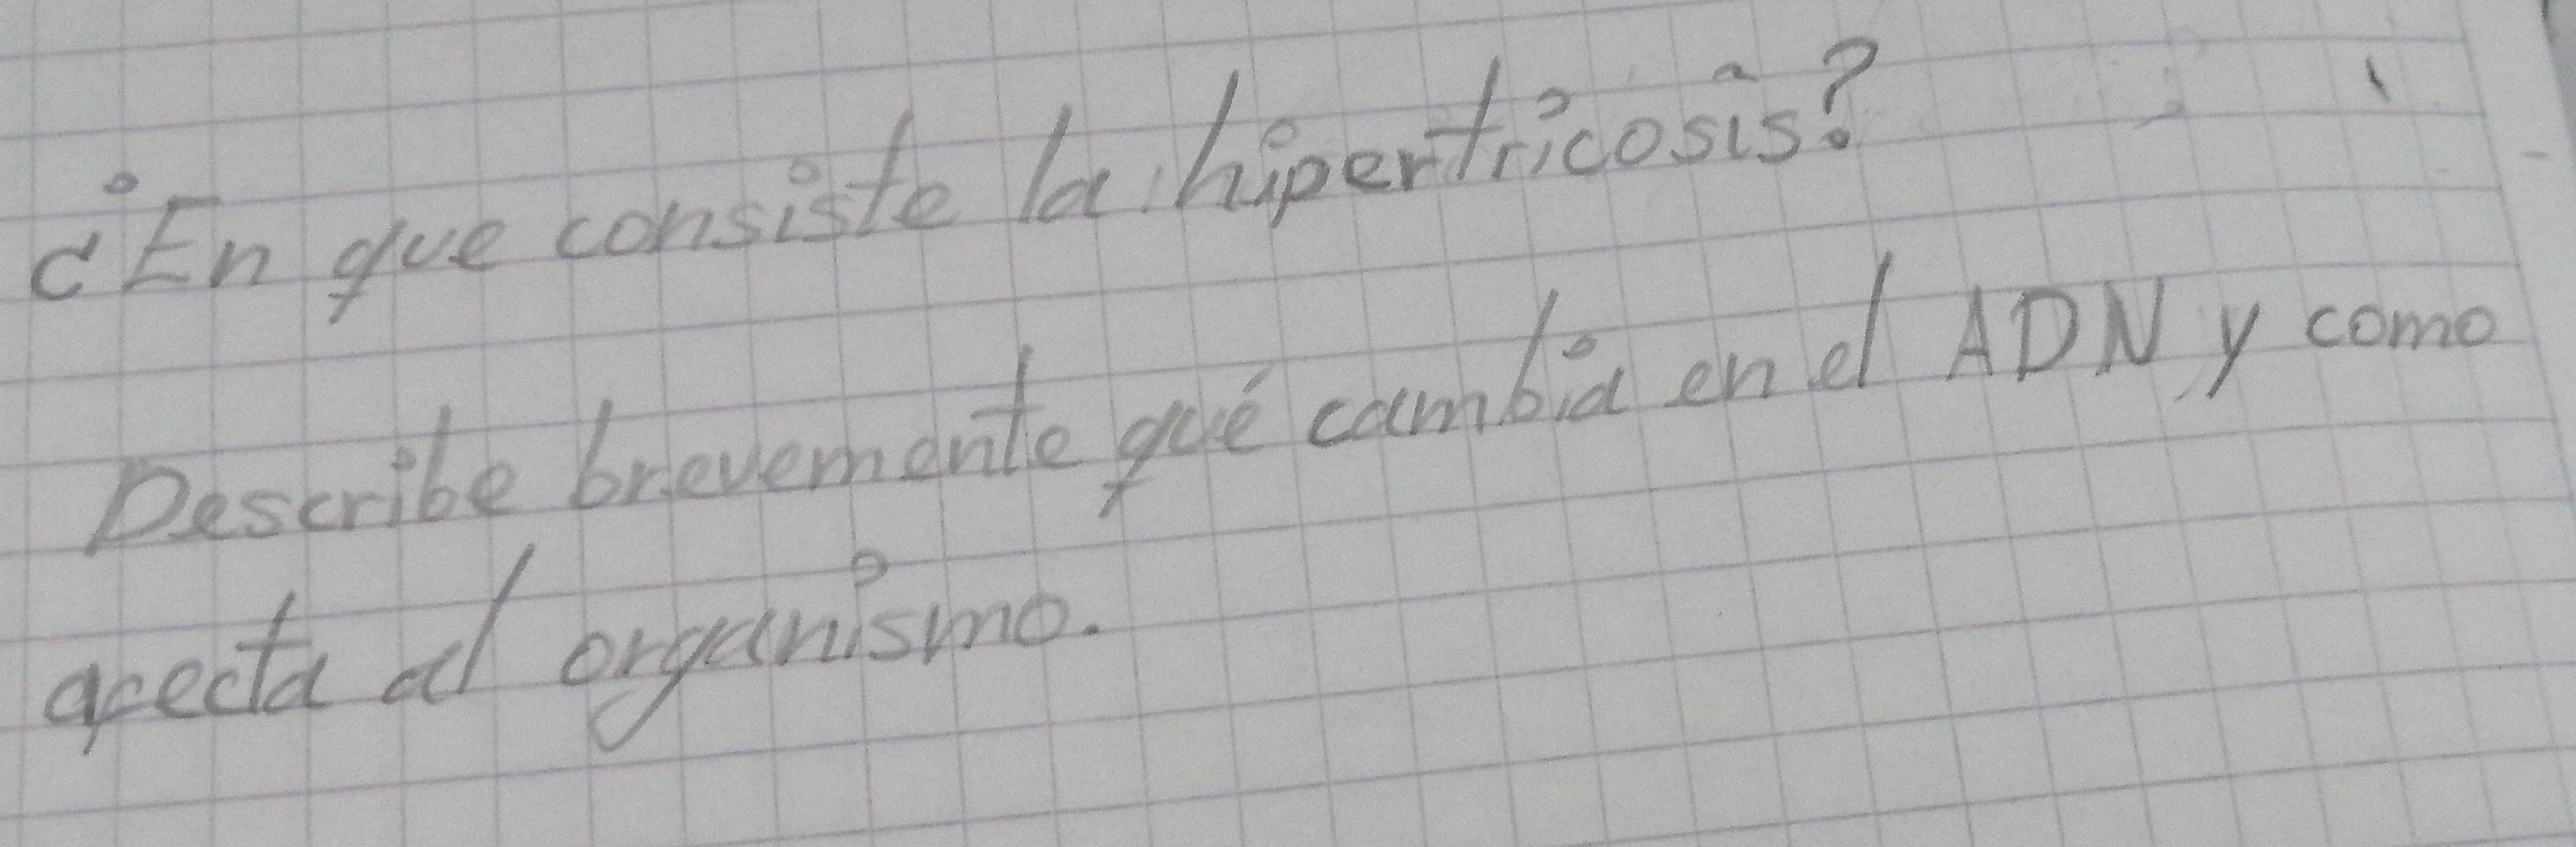 ¿En que consiste la hipertricosis?
Describe brevemente qué cambia en el ADN y como
afecta al organismo.